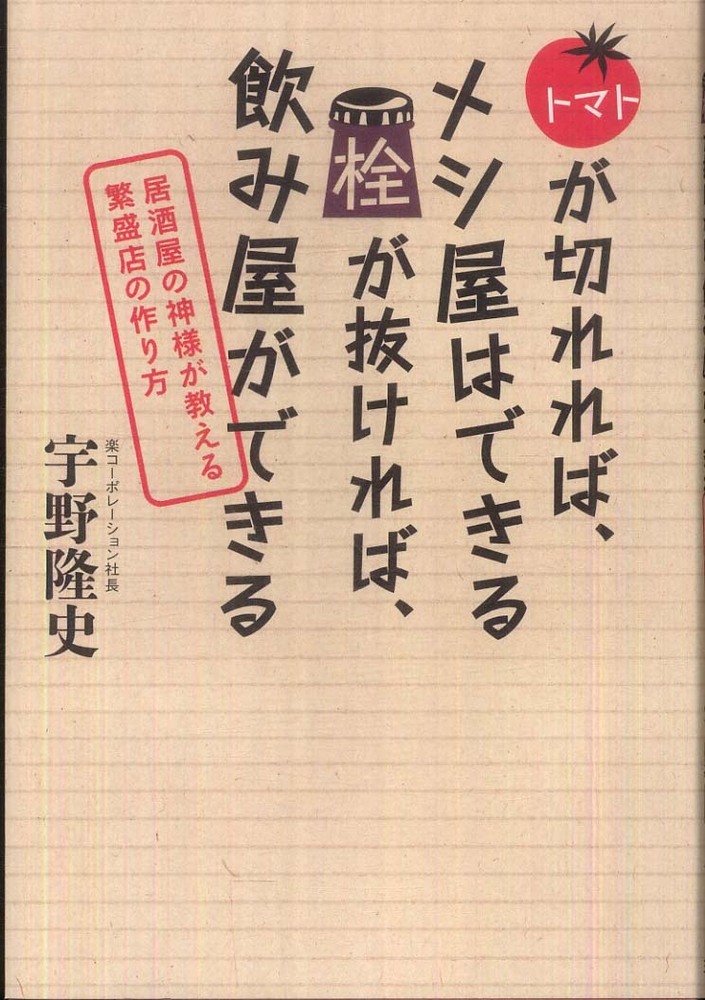 トマトが切れれば、
メシ屋はできる
栓が抜ければ、
飲み屋ができる
居酒屋の神様が教える
繁盛店の作り方
楽コーポレーション社長
宇野隆史